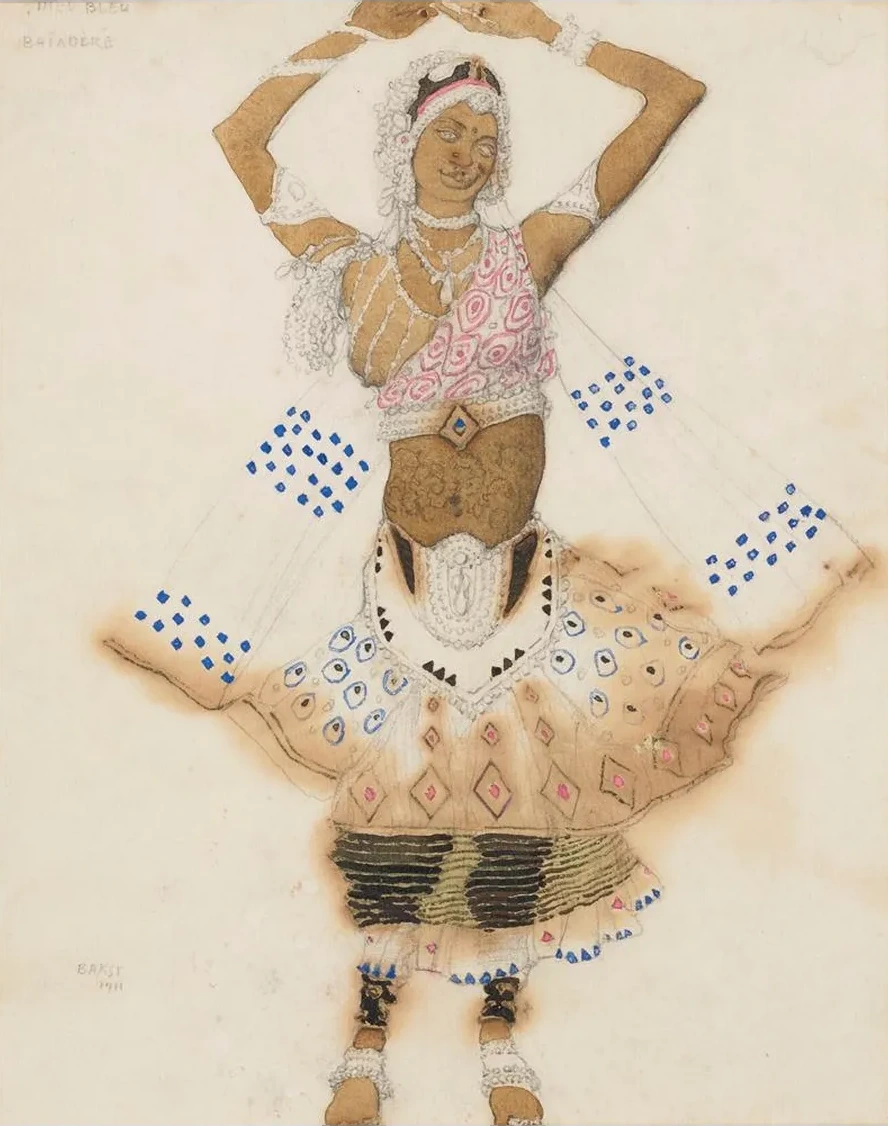 DIEU BLEU
BAÏADÈRE
BAKST
1911